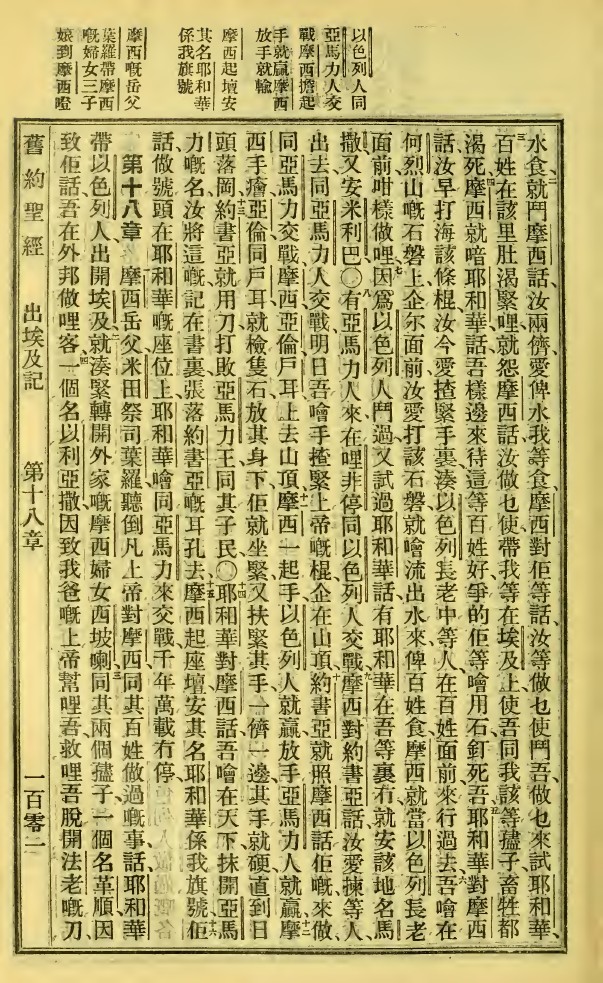 以色列人同
亞馬力人交
戰摩西擔起
手就贏摩西
放手就輸
摩西起壇安
其名耶和華
係我旗號
摩西嘅岳父
葉羅帶摩西
嘅婦女三子
娘到摩西嶝
水食、就鬥摩西話、汝兩儕愛俾水我等食、摩西對佢等話、汝等做乜使鬥吾、做乜來試耶和華、
三百姓在該里肚渴緊哩、就怨摩西話、汝做乜使帶我等在埃及上、使吾同我該等𡥧子畜牲都
渴死、四摩西就喑耶和華話、吾樣邊來待這等百姓好爭的佢等噲用石釘死吾、五耶和華對摩西
話、汝早打海該條棍、汝今愛揸緊手裏、湊以色列長老中等人在百姓面前來行過去、六吾噲在
何烈山嘅石磐上企尔面前、汝愛打該石磐就噲流出水來、俾百姓食、摩西就當以色列長老
面前咁樣做哩、七因爲以色列人鬥過又試過耶和華話、有耶和華在吾等裏冇、就安該地名馬
撒、又安米利巴、〇八有亞馬力人來在哩非停同以色列人交戰、九摩西對約書亞話、汝愛揀等人
出去、同亞馬力人交戰、明日吾噲手揸緊上帝嘅棍、企在山頂、十約書亞就照摩西話佢嘅來做、
同亞馬力交戰、摩西亞倫戶耳上去山頂、十一摩西一起手、以色列人就贏、放手、亞馬力人就贏、十二摩
西手癐、亞倫同戶耳就檢隻石放其身下、佢就坐緊、又扶緊其手、一儕一邊、其手就硬直到日
頭落岡、十三約書亞就用刀打敗亞馬力王同其子民、〇十四耶和華對摩西話、吾噲在天下抹開亞馬
力嘅名、汝將這嘅記在書裏、張落約書亞嘅耳孔去、十五摩西起座壇、安其名耶和華係我旗號、十六佢
話、做號頭在耶和華嘅座位上、耶和華噲同亞馬力來交戰、千年萬載冇停、
第十八章 摩西岳父米田祭司葉羅聽倒凡上帝對摩西同其百姓做過嘅事、話、耶和華
帶以色列人出開埃及、二就湊緊轉開外家嘅摩西婦女西坡喇、三同其兩個𡥧子、一個名革順、因
致佢話、吾在外邦做哩客、四一個名以利亞撒、因致我爸嘅上帝幫哩吾、救哩吾脫開法老嘅刀、
舊約聖經 出埃及記 第十八章 一百零二